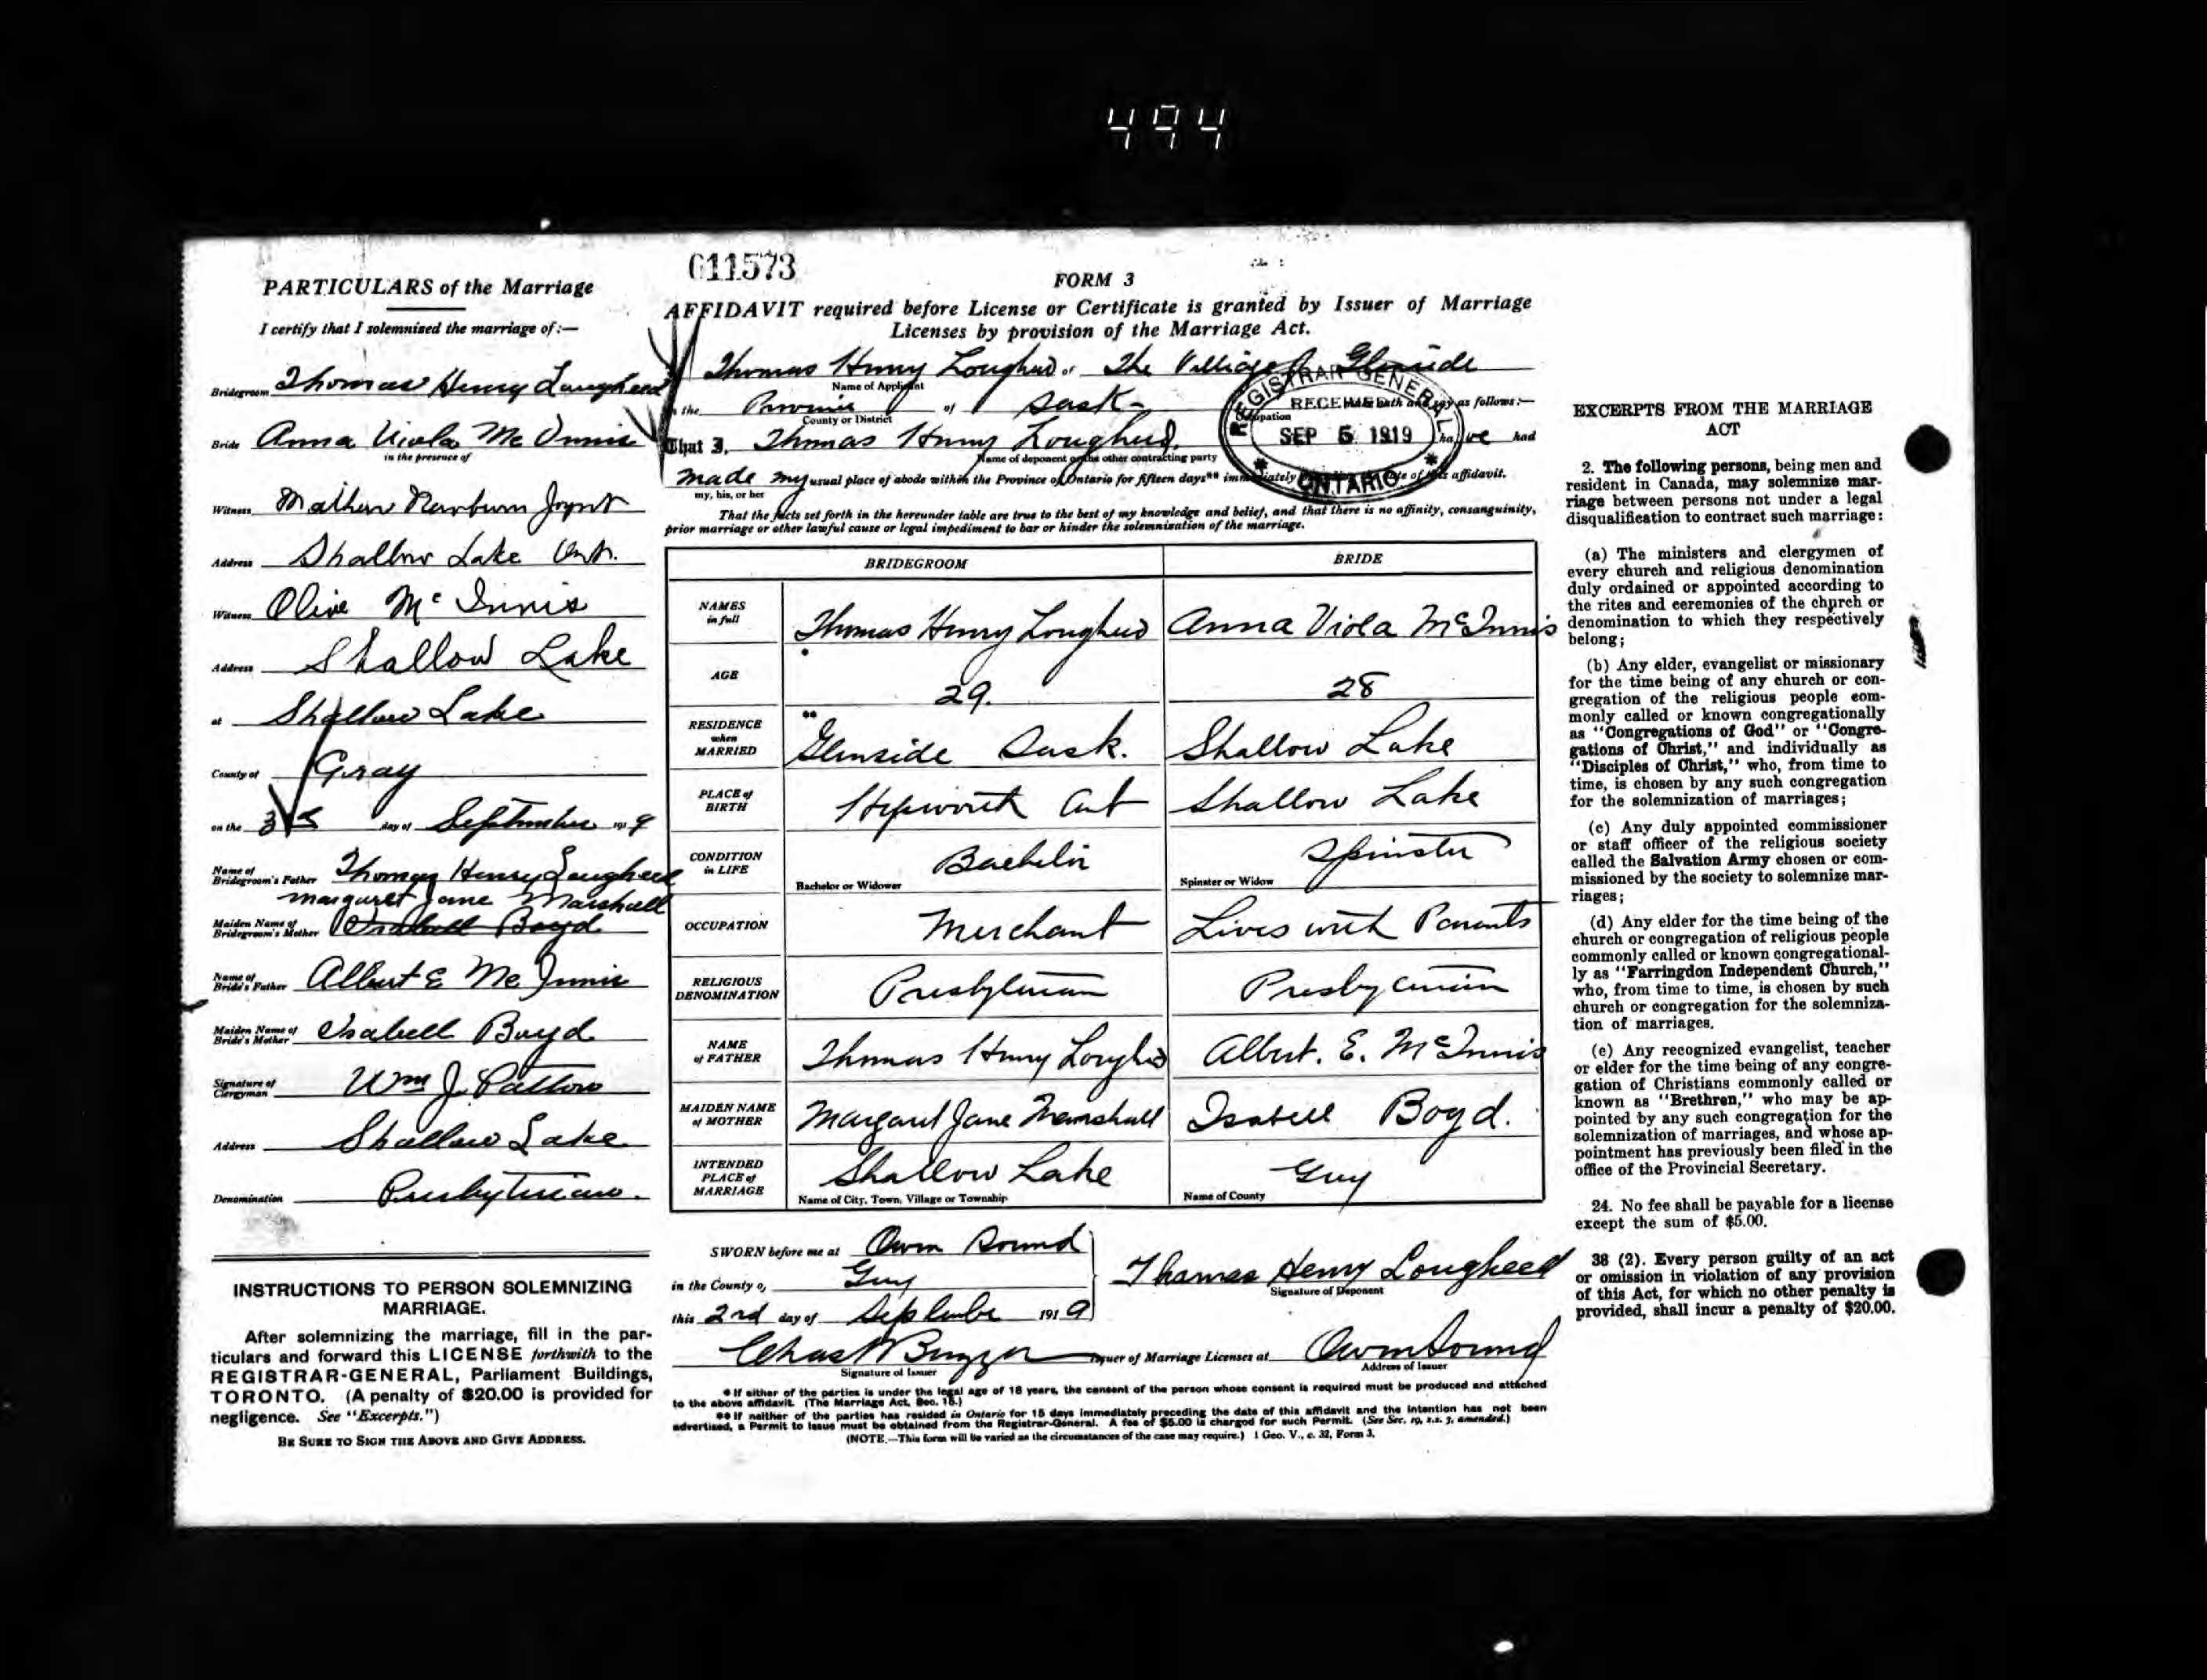 494
PARTICULARS of the Marriage
I certify that I solemnized the marriage of:—
Bridegroom Thomas Henry Lougheed
Bride Anna Viola Mc Innis
in the presence of
Witness Mathew Joynt
Address Shallow Lake Ont.
Witness Olive Mc Innis
Address Shallow Lake
at Shallow Lake
County of Gray
on the 3 day of September 1919
Name of Bridegroom's Father Thomas Henry Lougheed
Margaret Jane Marshall
Maiden Name of Bridegroom's Mother Isabell Boyd
Name of Bride's Father Albert E Mc Innis
Maiden Name of Bride's Mother Isabell Boyd
Signature of Clergyman Wm J.
Address Shallow Lake
Denomination Presbyterian.
INSTRUCTIONS TO PERSON SOLEMNIZING
MARRIAGE.
After solemnizing the marriage, fill in the par-
ticulars and forward this LICENSE forthwith to the
REGISTRAR-GENERAL, Parliament Buildings,
TORONTO. (A penalty of $20.00 is provided for
negligence. See "Excerpts.")
BE SURE TO SIGN THE ABOVE AND GIVE ADDRESS.
011573
FORM 3
AFFIDAVIT required before License or Certificate is granted by Issuer of Marriage
Licenses by provision of the Marriage Act.
I Thomas Henry Lougheed of The Village of Glenside
Name of Applicant
in the Province of Sask-
County or District
Occupation
as follows:—
That I, Thomas Henry Lougheed have had
Name of deponent or the other contracting party
made my usual place of abode within the Province of Ontario for fifteen days** immediately date of this affidavit.
my, his, or her
REGISTRAR GENERAL
RECEIVED
SEP 5 1919
ONTARIO
That the facts set forth in the hereunder table are true to the best of my knowledge and belief, and that there is no affinity, consanguinity,
prior marriage or other lawful cause or legal impediment to bar or hinder the solemnization of the marriage.
BRIDEGROOM BRIDE
NAMES in full Thomas Henry Lougheed Anna Viola McInnis
AGE * 29. 28
RESIDENCE when MARRIED ** Glenside Sask. Shallow Lake
PLACE of BIRTH Hepworth Ont Shallow Lake
CONDITION in LIFE Bachelor Spinster
Bachelor or Widower Spinster or Widow
OCCUPATION Merchant Lives with Parents
RELIGIOUS DENOMINATION Presbyterian Presbyterian
NAME of FATHER Thomas Henry Lougheed Albert. E. McInnis
MAIDEN NAME of MOTHER Margaret Jane Marshall Isabell Boyd.
INTENDED PLACE of MARRIAGE Shallow Lake Grey
Name of City, Town, Village or Township Name of County
SWORN before me at Owen Sound
in the County of Grey
this 2nd day of September 1919
Thomas Henry Lougheed
Signature of Deponent
Chas Issuer of Marriage Licenses at Owen Sound
Signature of Issuer Address of Issuer
* If either of the parties is under the legal age of 18 years, the consent of the person whose consent is required must be produced and attached
to the above affidavit. (The Marriage Act, Sec. 15.)
** If neither of the parties has resided in Ontario for 15 days immediately preceding the date of this affidavit and the intention has not been
advertised, a Permit to Issue must be obtained from the Registrar-General. A fee of $5.00 is charged for such Permit. (See Sec. 19, s.s. 3, amended.)
(NOTE.—This form will be varied as the circumstances of the case may require.) 1 Geo. V., c. 32, Form 3.
EXCERPTS FROM THE MARRIAGE
ACT
2. The following persons, being men and
resident in Canada, may solemnize mar-
riage between persons not under a legal
disqualification to contract such marriage:
(a) The ministers and clergymen of
every church and religious denomination
duly ordained or appointed according to
the rites and ceremonies of the church or
denomination to which they respectively
belong;
(b) Any elder, evangelist or missionary
for the time being of any church or con-
gregation of the religious people com-
monly called or known congregationally
as "Congregations of God" or "Congre-
gations of Christ," and individually as
"Disciples of Christ," who, from time to
time, is chosen by any such congregation
for the solemnization of marriages;
(c) Any duly appointed commissioner
or staff officer of the religious society
called the Salvation Army chosen or com-
missioned by the society to solemnize mar-
riages;
(d) Any elder for the time being of the
church or congregation of religious people
commonly called or known congregational-
ly as "Farringdon Independent Church,"
who, from time to time, is chosen by such
church or congregation for the solemniza-
tion of marriages.
(e) Any recognized evangelist, teacher
or elder for the time being of any congre-
gation of Christians commonly called or
known as "Brethren," who may be ap-
pointed by any such congregation for the
solemnization of marriages, and whose ap-
pointment has previously been filed in the
office of the Provincial Secretary.
24. No fee shall be payable for a license
except the sum of $5.00.
38 (2). Every person guilty of an act
or omission in violation of any provision
of this Act, for which no other penalty is
provided, shall incur a penalty of $20.00.